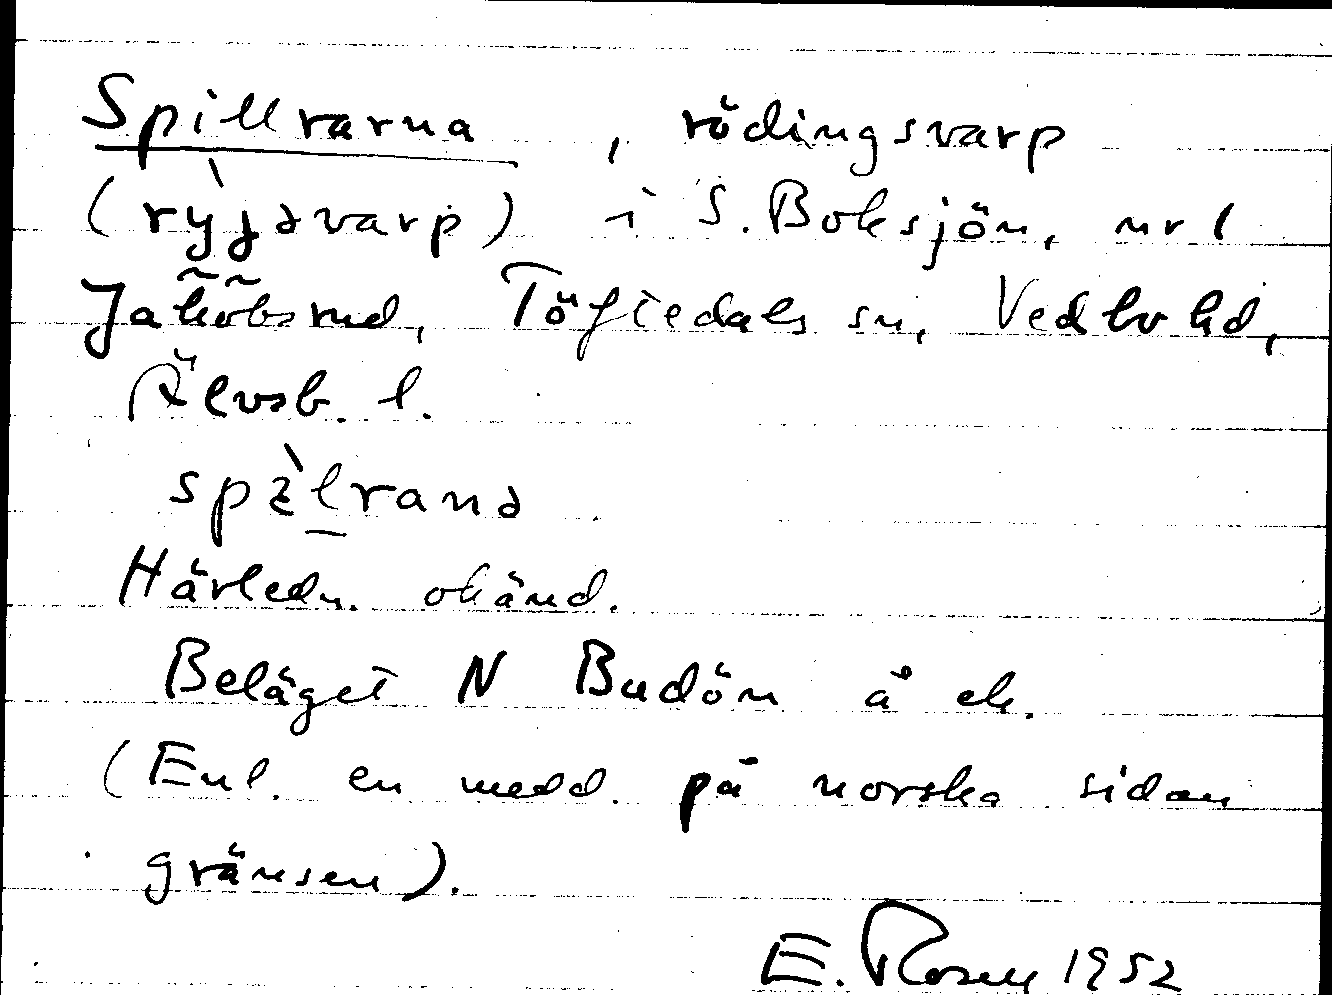 Spillrarna, rödingsvarp
(rỳjəvarp) i S. Boksjön, nr 1
Jakobsrud, Töftedals sn, Vedbo hd,
Älvsb. l.
spɛ̀lranə
Härledn. okänd.
Beläget N Budön å ek.
(Enl. en medd. på norska sidan
gränsen).
E. Rosen 1952